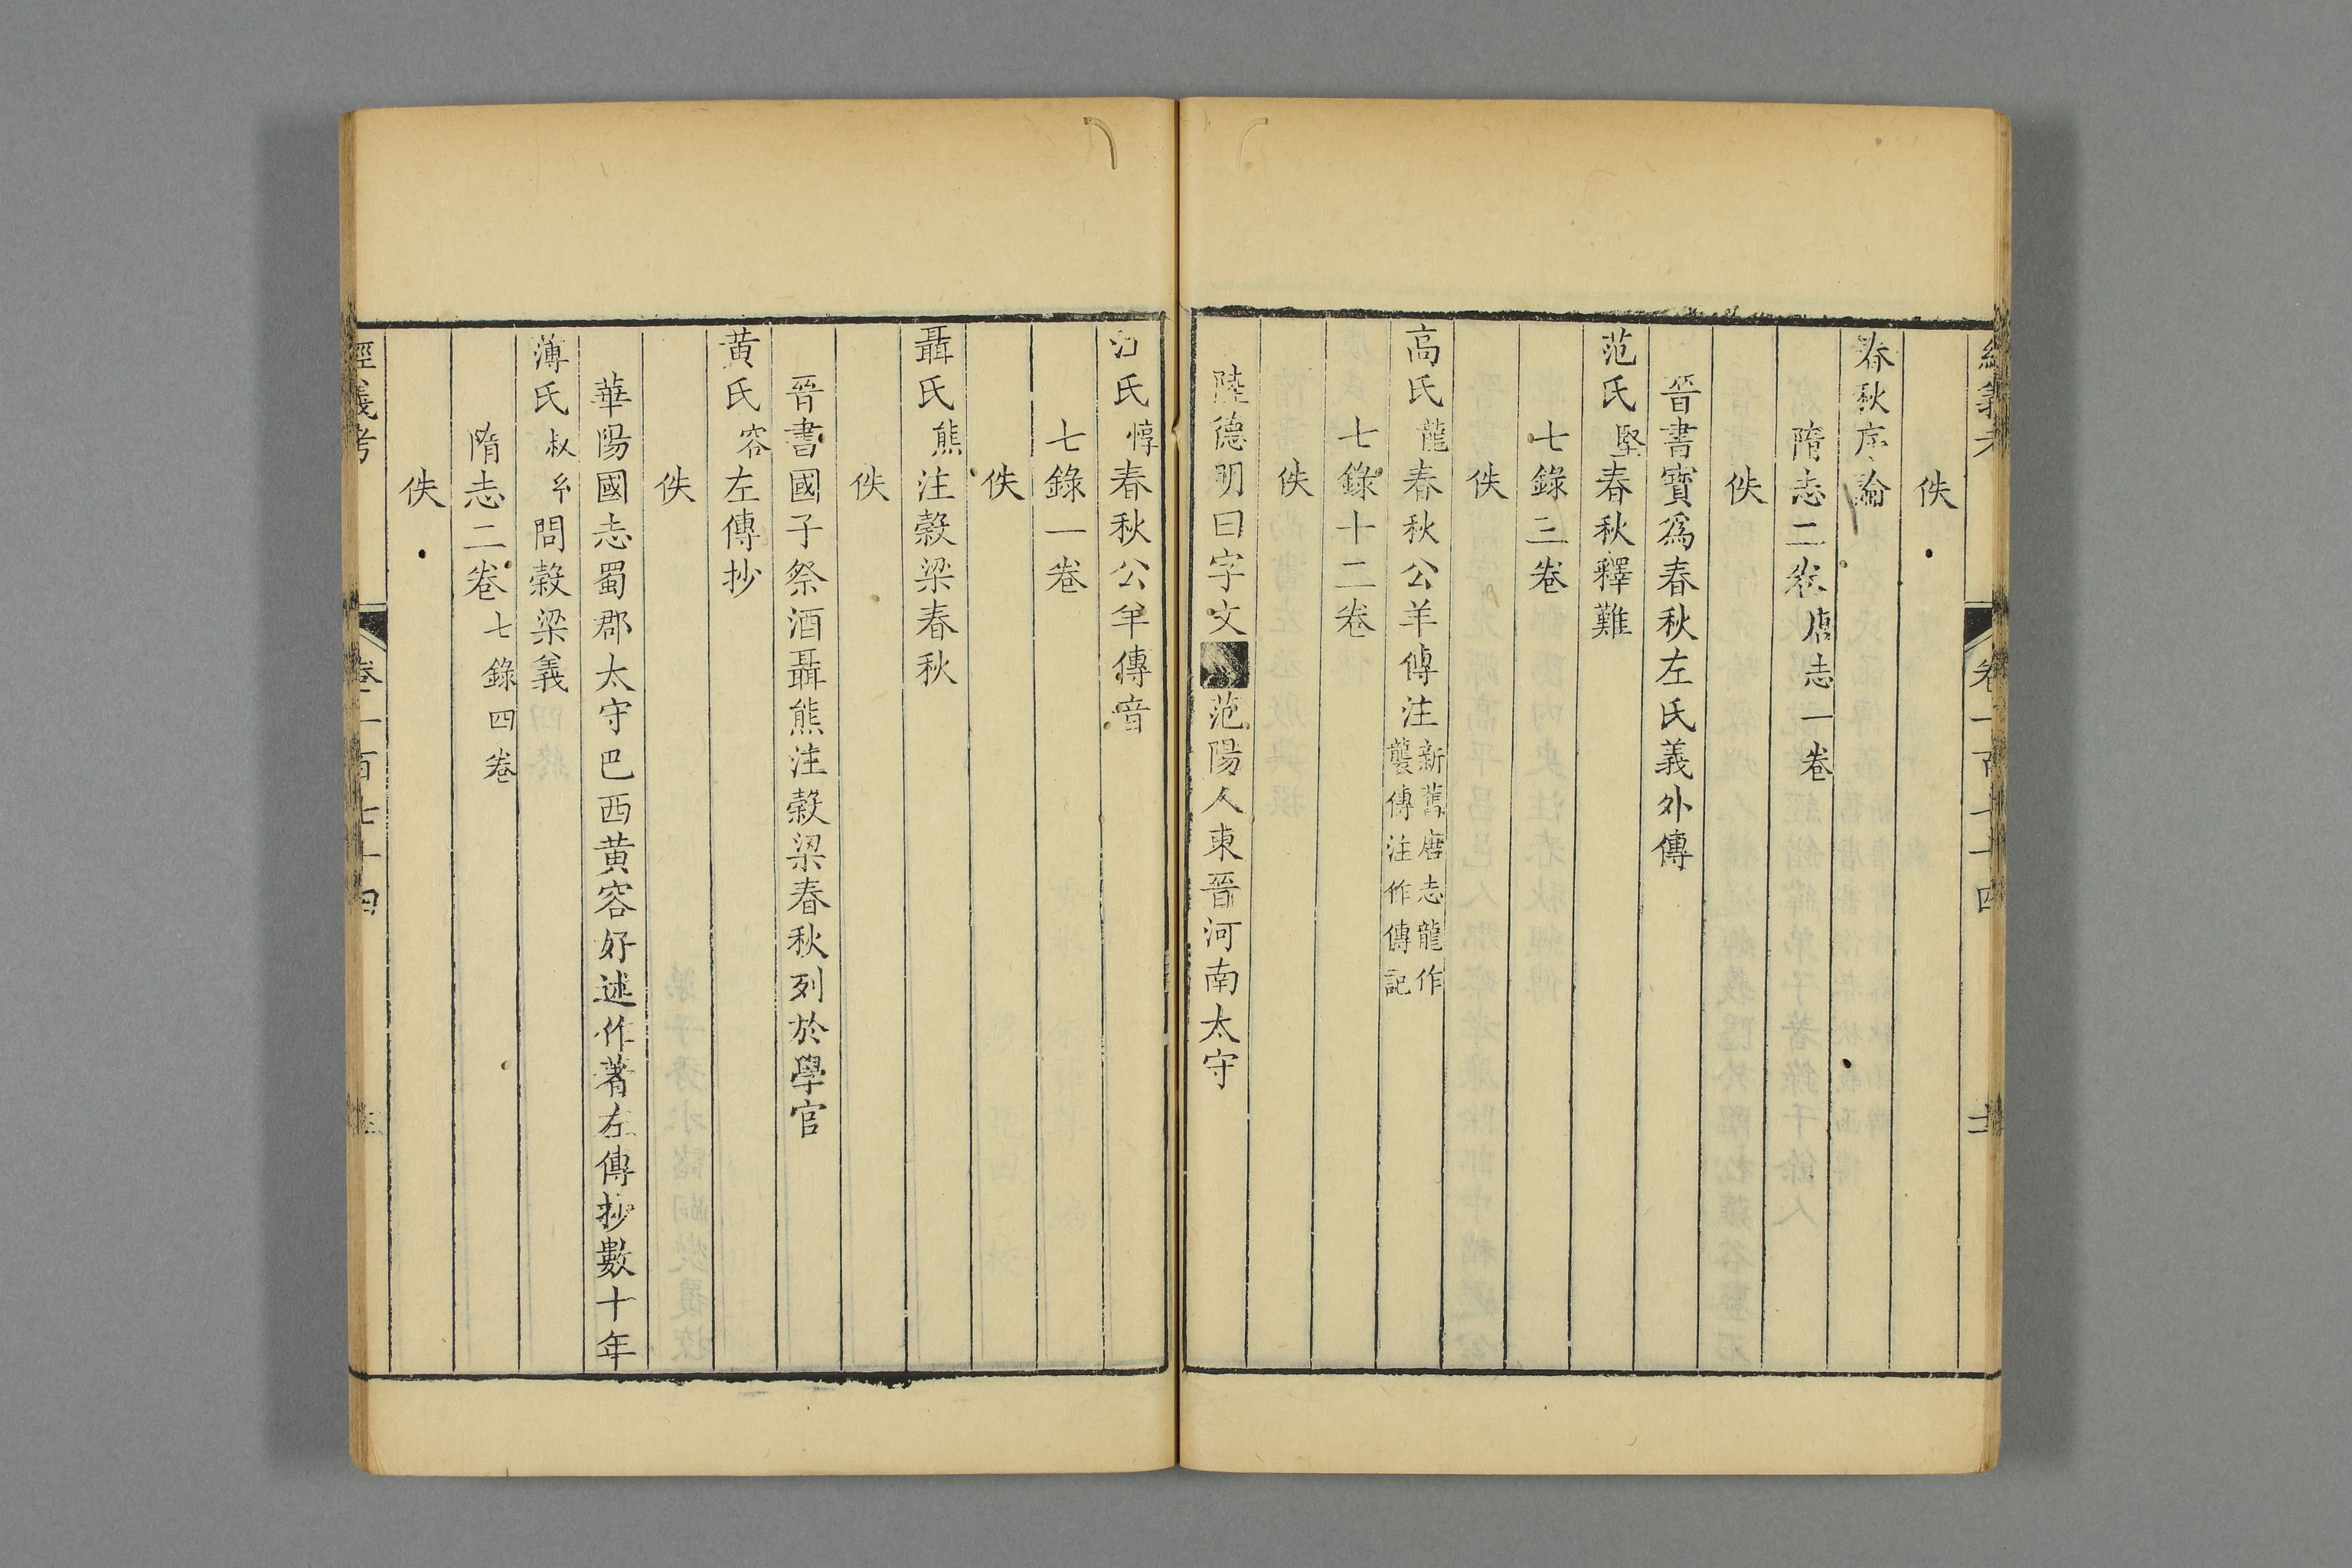 佚
春秋序論
隋志二卷唐志一卷
佚
晉書寶爲春秋左氏義外傳
范氏堅春秋釋難
七錄三卷
佚
高氏龍春秋公羊傳注新舊唐志龍作
襲傳注作傳記
七錄十二卷
佚
陸德明曰字文范陽人東晉河南太守
氏惇春秋公羊傳音
七錄一卷
佚
聶氏熊注榖梁春秋
佚
晉書國子祭酒聶熊注榖梁春秋列於學官
黄氏容左傳抄
佚
華陽國志蜀郡太守巴西黄容好述作著左傳抄數十年
薄氏叔問榖梁義
隋志二卷七錄四卷
佚
經義考
卷一百七十四